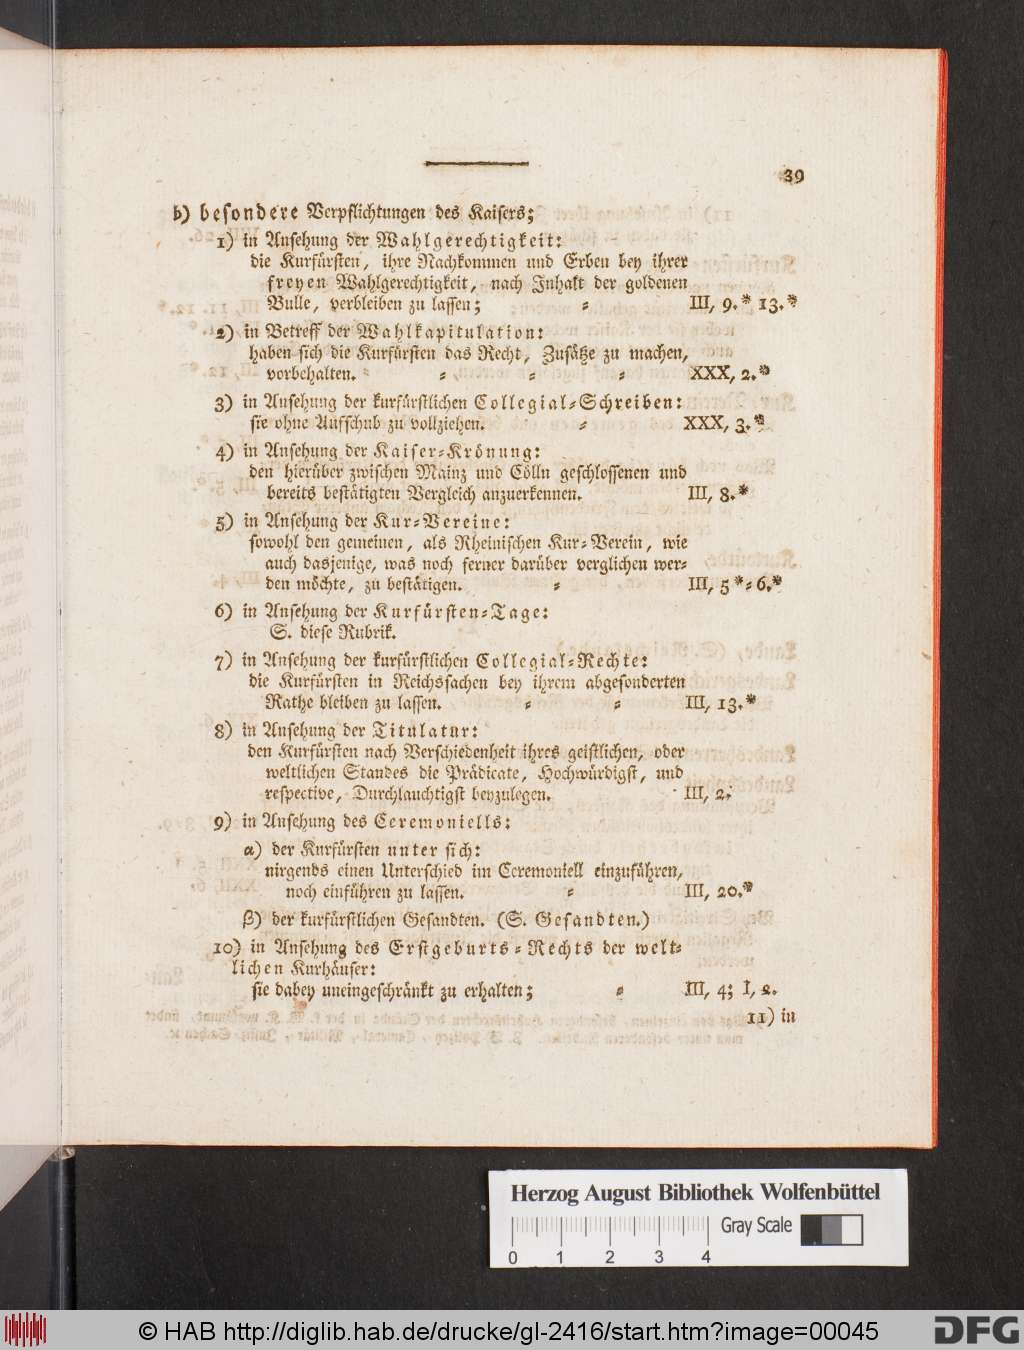 39
b) besondere Verpflichtungen des Kaisers;
1) in Ansehung der Wahlgerechtigkeit:
die Kurfürsten, ihre Nachkommen und Erben bey ihrer
freyen Wahlgerechtigkeit, nach Inhalt der goldenen
Bulle, verbleiben zu lassen; = III, 9.* 13.*
2) in Betreff der Wahlkapitulation:
haben sich die Kurfürsten das Recht, Zusätze zu machen,
vorbehalten. = = = XXX, 2.*
3) in Ansehung der kurfürstlichen Collegial=Schreiben:
sie ohne Aufschub zu vollziehen. = XXX, 3.*
4) in Ansehung der Kaiser=Krönung:
den hierüber zwischen Mainz und Cölln geschlossenen und
bereits bestätigten Vergleich anzuerkennen. III, 8.*
5) in Ansehung der Kur=Vereine:
sowohl den gemeinen, als Rheinischen Kur=Verein, wie
auch dasjenige, was noch ferner darüber verglichen wer=
den möchte, zu bestätigen. = III, 5*=6.*
6) in Ansehung der Kurfürsten=Tage:
S. diese Rubrik.
7) in Ansehung der kurfürstlichen Collegial=Rechte:
die Kurfürsten in Reichssachen bey ihrem abgesonderten
Rathe bleiben zu lassen. = = III, 13.*
8) in Ansehung der Titulatur:
den Kurfürsten nach Verschiedenheit ihres geistlichen, oder
weltlichen Standes die Prädicate, Hochwürdigst, und
respective, Durchlauchtigst beyzulegen. III, 2.
9) in Ansehung des Ceremoniells:
α) der Kurfürsten unter sich:
nirgends einen Unterschied im Ceremoniell einzuführen,
noch einführen zu lassen. = III, 20.*
β) der kurfürstlichen Gesandten. (S. Gesandten.)
10) in Ansehung des Erstgeburts=Rechts der welt=
lichen Kurhäuser:
sie dabey uneingeschränkt zu erhalten; = III, 4; I, 2.
11) in
Herzog August Bibliothek Wolfenbüttel
Gray Scale
0 1 2 3 4
© HAB http://diglib.hab.de/drucke/gl-2416/start.htm?image=00045
DFG